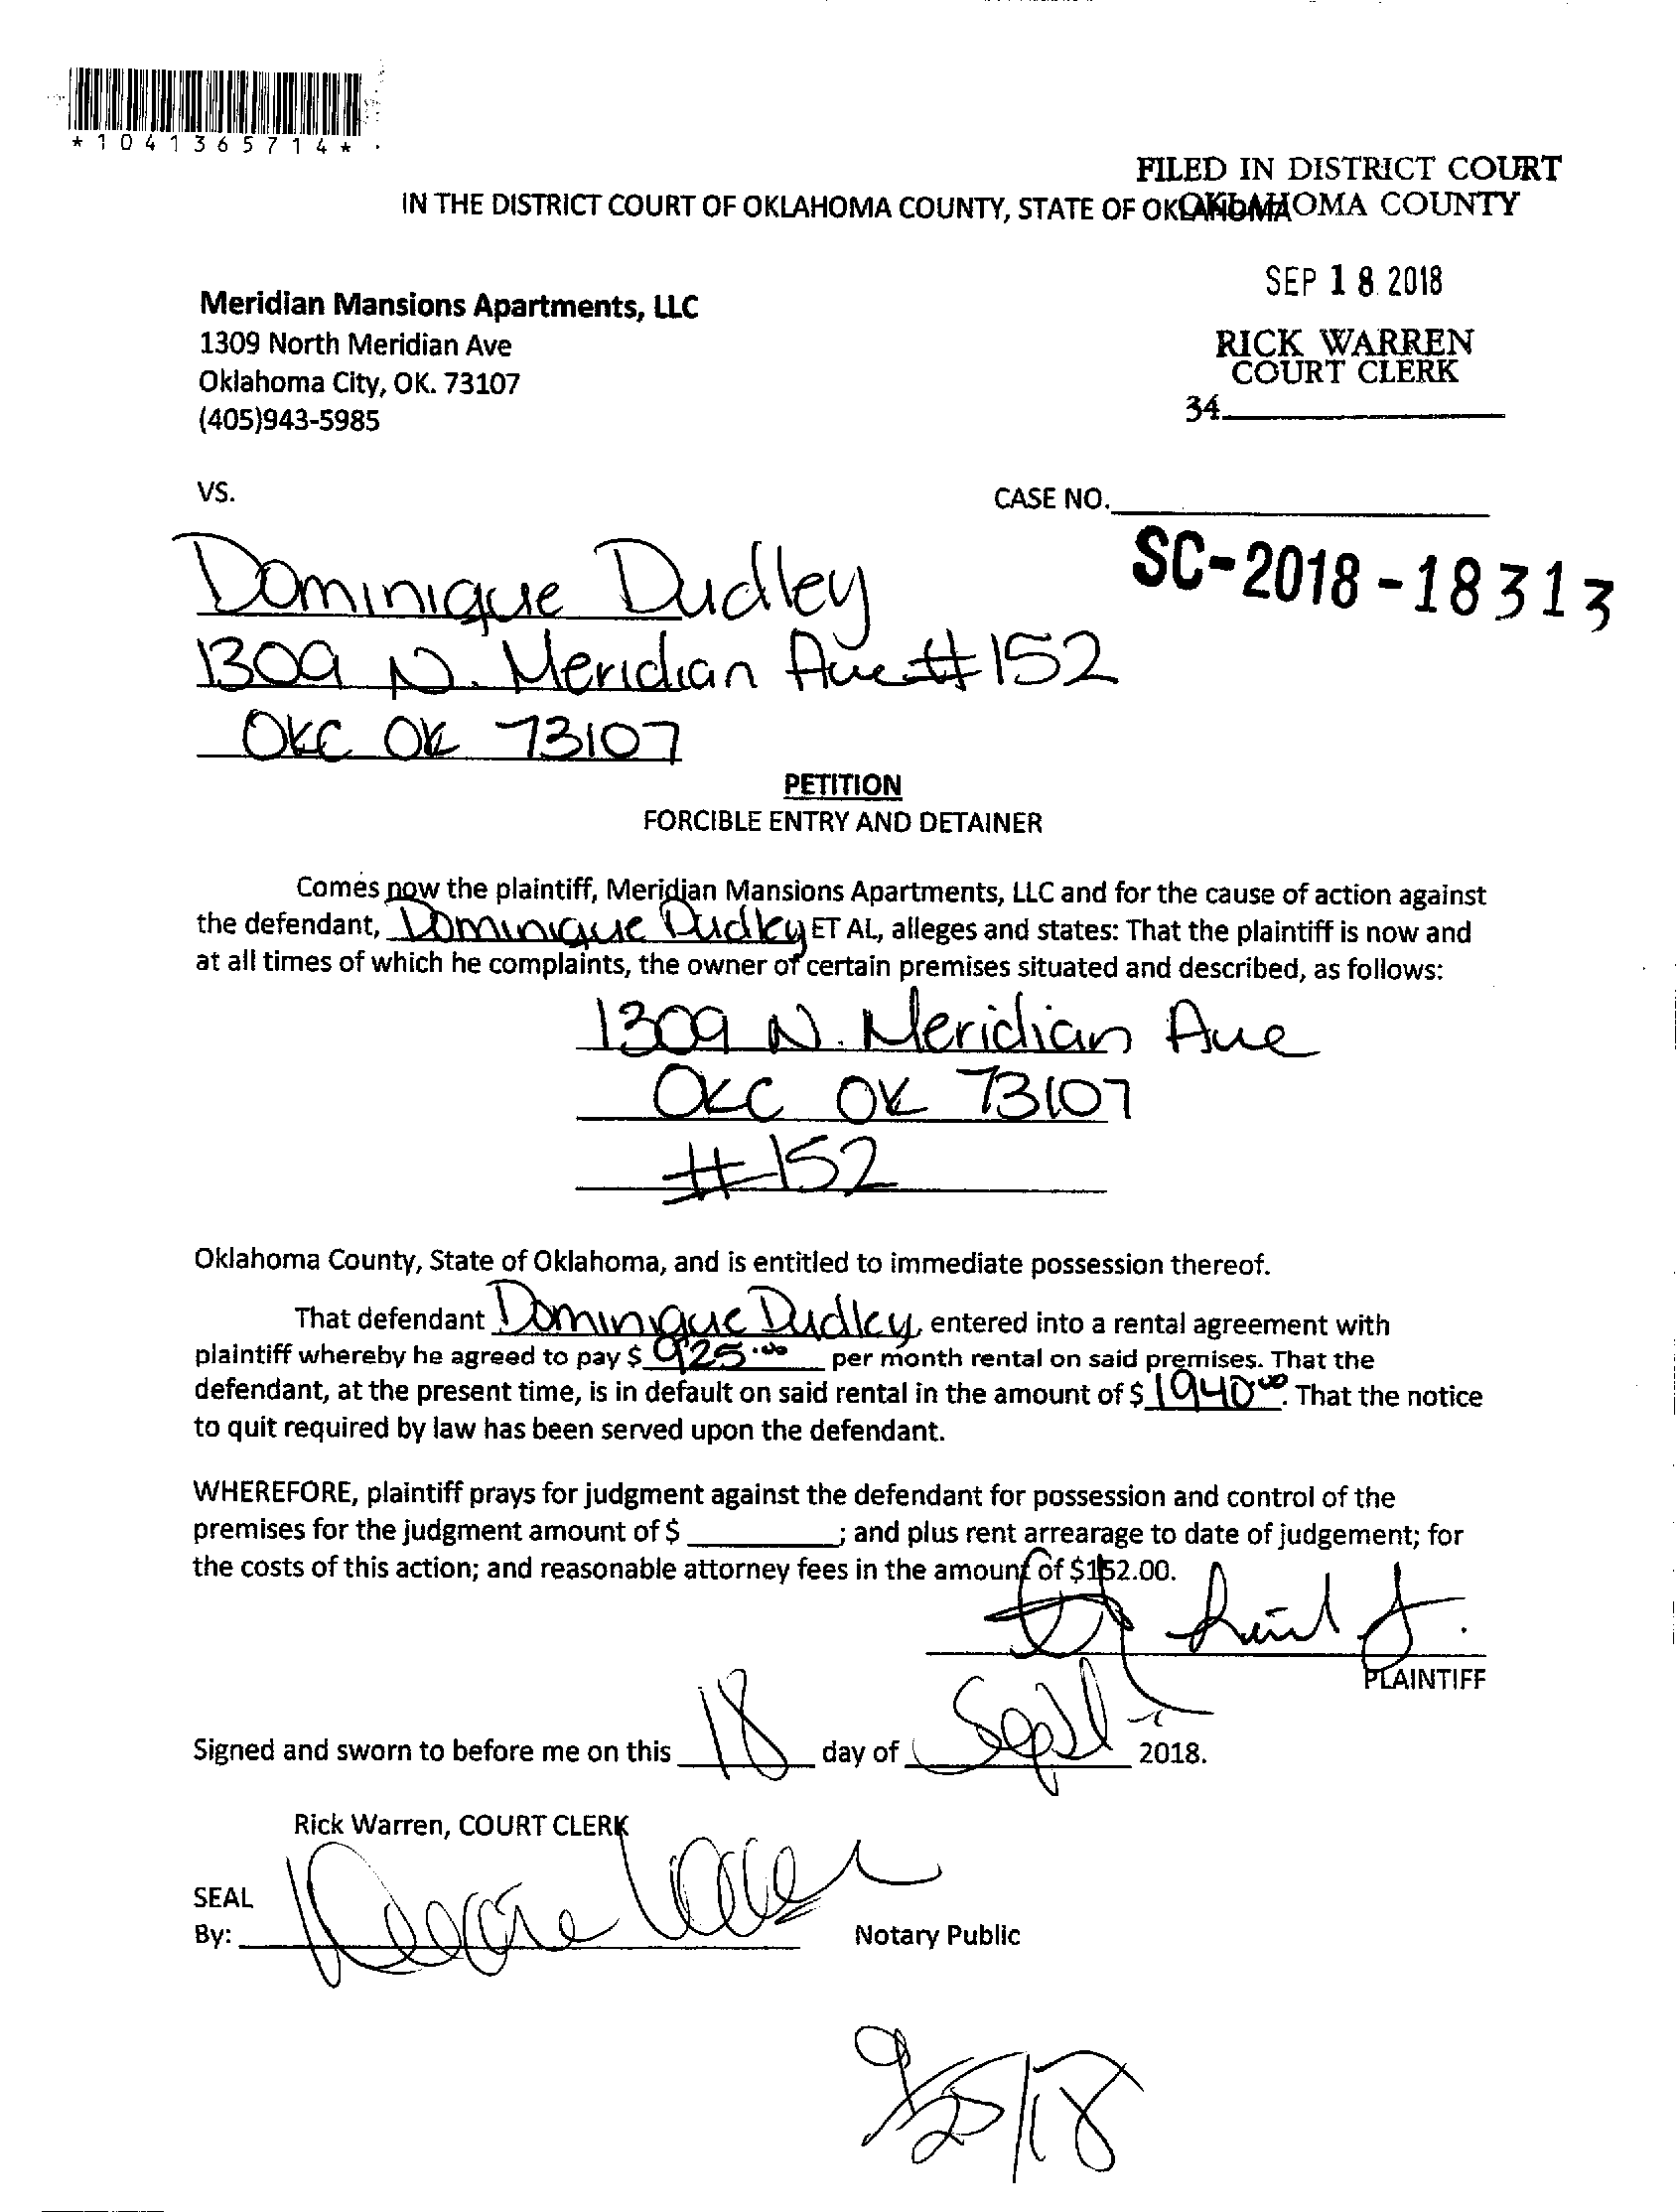 *1041365714*
FILED IN DISTRICT COURT
OKLAHOMA COUNTY
IN THE DISTRICT COURT OF OKLAHOMA COUNTY, STATE OF OKLAHOMA
SEP 18 2018
Meridian Mansions Apartments, LLC
1309 North Meridian Ave
Oklahoma City, OK. 73107
(405)943-5985
RICK WARREN
COURT CLERK
34
VS.
CASE NO.
SC-2018-18313
Dominique Dudley
1309 N. Meridian Ave #152
OKC OK 73107
PETITION
FORCIBLE ENTRY AND DETAINER
Comes now the plaintiff, Meridian Mansions Apartments, LLC and for the cause of action against
the defendant, Dominique Dudley ET AL, alleges and states: That the plaintiff is now and
at all times of which he complaints, the owner of certain premises situated and described, as follows:
1309 N. Meridian Ave
OKC OK 73107
#152
Oklahoma County, State of Oklahoma, and is entitled to immediate possession thereof.
That defendant Dominique Dudley, entered into a rental agreement with
plaintiff whereby he agreed to pay $ 925.00 per month rental on said premises. That the
defendant, at the present time, is in default on said rental in the amount of $ 1940.00. That the notice
to quit required by law has been served upon the defendant.
WHEREFORE, plaintiff prays for judgment against the defendant for possession and control of the
premises for the judgment amount of $ ; and plus rent arrearage to date of judgement; for
the costs of this action; and reasonable attorney fees in the amount of $152.00.
PLAINTIFF
Signed and sworn to before me on this 18 day of Sept 2018.
Rick Warren, COURT CLERK
SEAL
By:
Notary Public
9/25/18